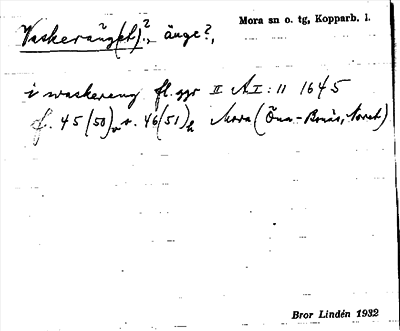 Vaskeräng(et)?, änge?,
Mora sn o. tg, Kopparb. l.
i waskereng fl. ggr II AI: 11 1645
f. 45 (50)v o. 46 (51)h Mora (Öna-Bonäs, Noret)
Bror Lindén 1932